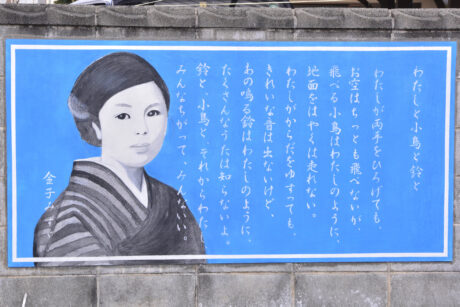 わたしと小鳥と鈴と
わたしが両手をひろげても、
お空はちっとも飛べないが、
飛べる小鳥はわたしのように、
地面をはやくは走れない。
わたしがからだをゆすっても、
きれいな音は出ないけど、
あの鳴る鈴はわたしのように、
たくさんなうたは知らないよ。
鈴と、小鳥と、それからわた
みんなちがって、みんないい。
金子み